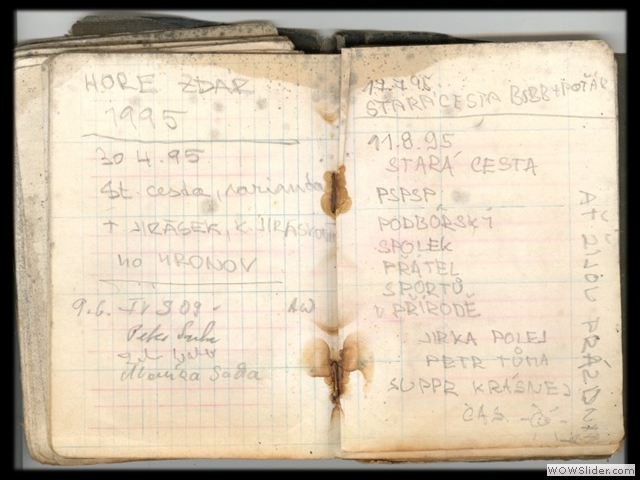 HORE ZDAR
1995
30.4.95
St. cesta, varianta
+ JIRÁSEK, K. JIRÁSKOVÁ
HO HRONOV
9.6.
17.7.95
STARÁ CESTA BOBB +
11.8.95
STARÁ CESTA
PSPSP
PODBORSKÝ
SPOLEK
PŘÁTEL
SPORTŮ
V PŘÍRODĚ
JIRKA POLEJ
PETR TŮMA
SUPPR KRÁSNEJ
ČAS
AŤ ŽIJOU PRÁZDNINY
WOWSlider.com